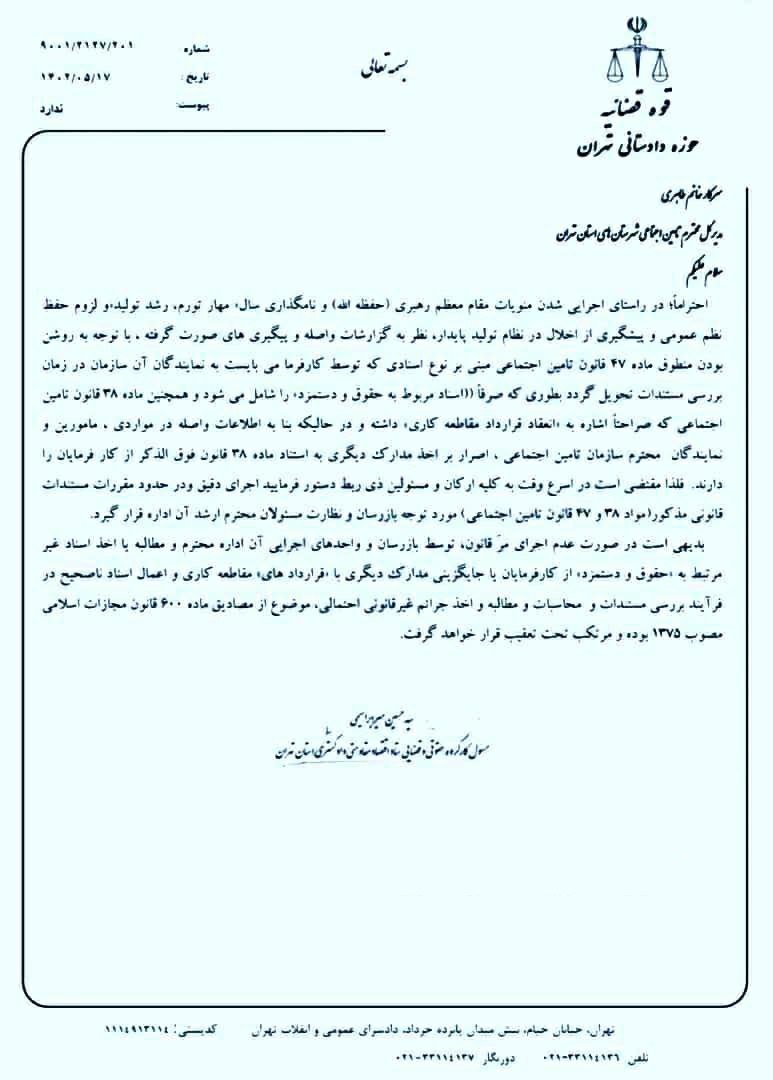 بسمه تعالی
شماره: ۹۰۰۱/۲۱۲۷/۲۰۱
تاریخ: ۱۴۰۲/۰۵/۱۷
پیوست: ندارد
قوه قضائیه
حوزه دادستانی تهران
سرکار خانم طاهری
مدیرکل محترم تامین اجتماعی شهرستان های استان تهران
سلام علیکم
احتراماً؛ در راستای اجرایی شدن منویات مقام معظم رهبری (حفظه الله) و نامگذاری سال« مهار تورم، رشد تولید»و لزوم حفظ
نظم عمومی و پیشگیری از اخلال در نظام تولید پایدار، نظر به گزارشات واصله و پیگیری های صورت گرفته ، با توجه به روشن
بودن منطوق ماده ۴۷ قانون تامین اجتماعی مبنی بر نوع اسنادی که توسط کارفرما می بایست به نمایندگان آن سازمان در زمان
بررسی مستندات تحویل گردد بطوری که صرفاً ((اسناد مربوط به حقوق و دستمزد» را شامل می شود و همچنین ماده ۳۸ قانون تامین
اجتماعی که صراحتاً اشاره به «انعقاد قرارداد مقاطعه کاری» داشته و در حالیکه بنا به اطلاعات واصله در مواردی ، مامورین و
نمایندگان محترم سازمان تامین اجتماعی ، اصرار بر اخذ مدارک دیگری به استناد ماده ۳۸ قانون فوق الذکر از کار فرمایان را
دارند. فلذا مقتضی است در اسرع وقت به کلیه ارکان و مسئولین ذی ربط دستور فرمایید اجرای دقیق ودر حدود مقررات مستندات
قانونی مذکور(مواد ۳۸ و ۴۷ قانون تامین اجتماعی) مورد توجه بازرسان و نظارت مسئولان محترم ارشد آن اداره قرار گیرد.
بدیهی است در صورت عدم اجرای مرّ قانون، توسط بازرسان و واحدهای اجرایی آن اداره محترم و مطالبه یا اخذ اسناد غیر
مرتبط به «حقوق و دستمزد» از کارفرمایان یا جایگزینی مدارک دیگری با «قرارداد های» مقاطعه کاری و اعمال اسناد ناصحیح در
فرآیند بررسی مستندات و محاسبات و مطالبه و اخذ جرائم غیرقانونی احتمالی، موضوع از مصادیق ماده ۶۰۰ قانون مجازات اسلامی
مصوب ۱۳۷۵ بوده و مرتکب تحت تعقیب قرار خواهد گرفت.
حسین
مسول کارگروه حقوقی و قضایی ستاد اقتصاد مقاومتی دادگستری استان تهران
تهران، خیابان خیام، نبش میدان پانزده خرداد، دادسرای عمومی و انقلاب تهران کدپستی: ۱۱۱۴۹۱۳۱۱۴
تلفن ۳۳۱۱۴۱۳۶-۰۲۱ دورنگار ۳۳۱۱۴۱۳۷-۰۲۱